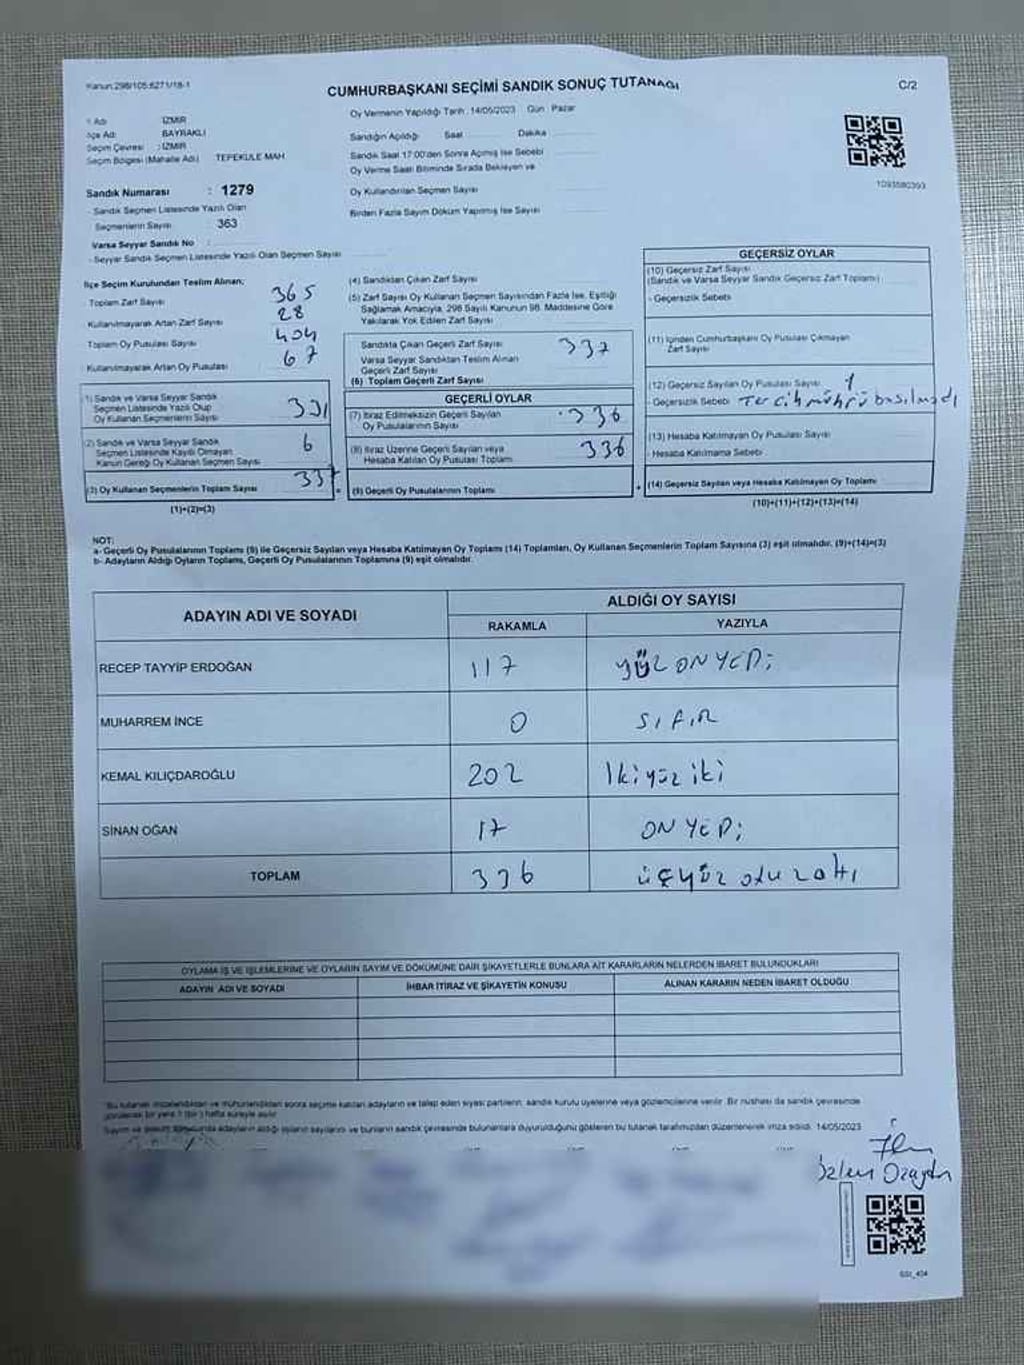 Kanun:298/105:6271/18-1
CUMHURBAŞKANI SEÇİMİ SANDIK SONUÇ TUTANAĞI
C/2
Oy Vermenin Yapıldığı Tarih :14/05/2023 Gün : Pazar
İl Adı : İZMİR
İlçe Adı: BAYRAKLI
Seçim Çevresi : İZMİR
Seçim Bölgesi (Mahalle Adı) TEPEKULE MAH.
Sandığın Açıldığı Saat Dakika
Sandık Saat 17:00'den Sonra Açılmış İse Sebebi
Oy Verme Saati Bitiminde Sırada Bekleyen ve
Oy Kullandırılan Seçmen Sayısı
Birden Fazla Sayım Döküm Yapılmış İse Sayısı
1093580393
Sandık Numarası : 1279
- Sandık Seçmen Listesinde Yazılı Olan
Seçmenlerin Sayısı 363
Varsa Seyyar Sandık No :
- Seyyar Sandık Seçmen Listesinde Yazılı Olan Seçmen Sayısı
İlçe Seçim Kurulundan Teslim Alınan;
Toplam Zarf Sayısı 365
Kullanılmayarak Artan Zarf Sayısı 28
Toplam Oy Pusulası Sayısı 404
Kullanılmayarak Artan Oy Pusulası 67
(1) Sandık ve Varsa Seyyar Sandık
Seçmen Listesinde Yazılı Olup
Oy Kullanan Seçmenlerin Sayısı 331
(2) Sandık ve Varsa Seyyar Sandık
Seçmen Listesinde Kayıtlı Olmayan
Kanun Gereği Oy Kullanan Seçmen Sayısı 6
(3) Oy Kullanan Seçmenlerin Toplam Sayısı 337
(1)+(2)=(3)
(4) Sandıktan Çıkan Zarf Sayısı
(5) Zarf Sayısı Oy Kullanan Seçmen Sayısından Fazla İse, Eşitliği
Sağlamak Amacıyla, 298 Sayılı Kanunun 98. Maddesine Göre
Yakılarak Yok Edilen Zarf Sayısı
Sandıkta Çıkan Geçerli Zarf Sayısı 337
Varsa Seyyar Sandıktan Teslim Alınan
Geçerli Zarf Sayısı
(6) Toplam Geçerli Zarf Sayısı
GEÇERLİ OYLAR
(7) İtiraz Edilmeksizin Geçerli Sayılan
Oy Pusulalarının Sayısı 336
(8) İtiraz Üzerine Geçerli Sayılan veya
Hesaba Katılan Oy Pusulası Toplamı 336
= (9) Geçerli Oy Pusulalarının Toplamı
GEÇERSİZ OYLAR
(10) Geçersiz Zarf Sayısı
(Sandık ve Varsa Seyyar Sandık Geçersiz Zarf Toplamı)
- Geçersizlik Sebebi
(11) İçinden Cumhurbaşkanı Oy Pusulası Çıkmayan
Zarf Sayısı
(12) Geçersiz Sayılan Oy Pusulası Sayısı 1
- Geçersizlik Sebebi Tercih mührü basılmadı
(13) Hesaba Katılmayan Oy Pusulası Sayısı
- Hesaba Katılmama Sebebi
+ (14) Geçersiz Sayılan veya Hesaba Katılmayan Oy Toplamı
(10)+(11)+(12)+(13)=(14)
NOT:
a- Geçerli Oy Pusulalarının Toplamı (9) ile Geçersiz Sayılan veya Hesaba Katılmayan Oy Toplamı (14) Toplamları, Oy Kullanan Seçmenlerin Toplam Sayısına (3) eşit olmalıdır. (9)+(14)=(3)
b- Adayların Aldığı Oyların Toplamı, Geçerli Oy Pusulalarının Toplamına (9) eşit olmalıdır.
ADAYIN ADI VE SOYADI
ALDIĞI OY SAYISI
RAKAMLA YAZIYLA
RECEP TAYYİP ERDOĞAN 117 YÜZ ONYEDİ
MUHARREM İNCE 0 SIFIR
KEMAL KILIÇDAROĞLU 202 İkiyüz iki
SİNAN OĞAN 17 ONYEDİ
TOPLAM 336 üçyüz otuz altı
OYLAMA İŞ VE İŞLEMLERİNE VE OYLARIN SAYIM VE DÖKÜMÜNE DAİR ŞİKAYETLERLE BUNLARA AİT KARARLARIN NELERDEN İBARET BULUNDUKLARI
ADAYIN ADI VE SOYADI İHBAR İTİRAZ VE ŞİKAYETİN KONUSU ALINAN KARARIN NEDEN İBARET OLDUĞU
Bu tutanak imzalandıktan ve mühürlendikten sonra seçime katılan adayların ve talep eden siyasi partilerin, sandık kurulu üyelerine veya gözlemcilerine verilir. Bir nüshası da sandık çevresinde
görülecek bir yere 1 (bir) hafta süreyle asılır.
Sayım ve döküm sonucunda adayların aldığı oyların sayılarını ve bunların sandık çevresinde bulunanlara duyurulduğunu gösteren bu tutanak tarafımızdan düzenlenerek imza edildi. 14/05/2023
SSI_404